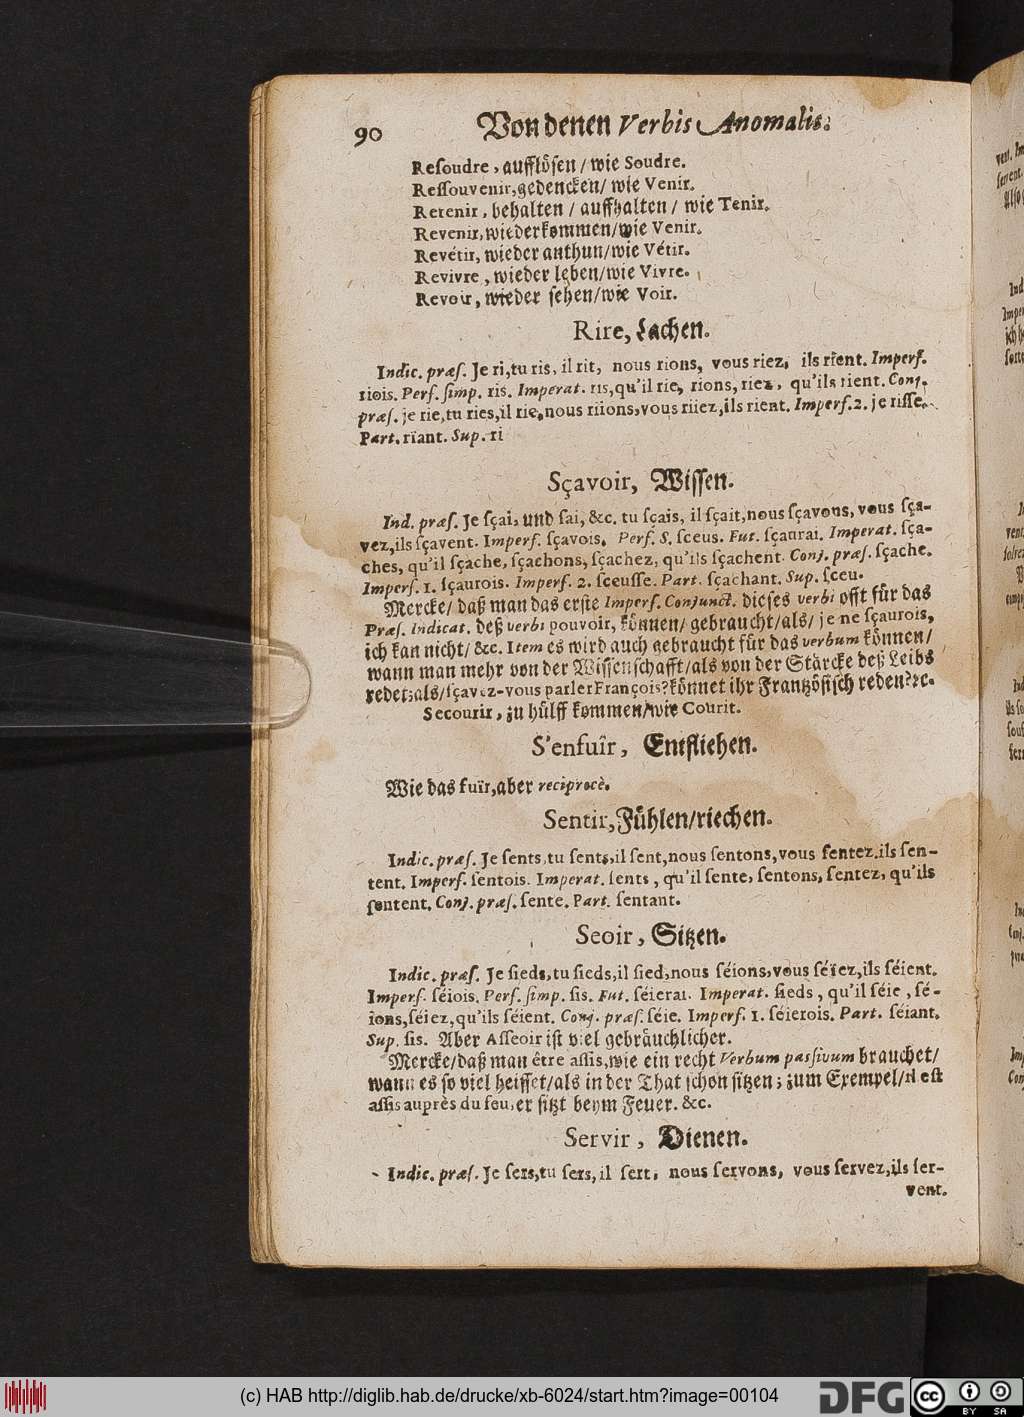 90 Von denen Verbis Anomalis.
Reſoudre, aufflöſen / wie Soudre.
Reſſouvenir, gedencken / wie Venir.
Retenir, behalten / auffhalten / wie Tenir.
Revenir, wiederkommen / wie Venir.
Revétir, wieder anthun / wie Vétir.
Revivre, wieder leben / wie Vivre.
Revoir, wieder ſehen / wie Voir.
Rire, Lachen.
Indic. præſ. Je ri, tu ris, il rit, nous rions, vous riez, ils rient. Imperf.
riois. Perf. ſimp. ris. Imperat. ris, qu'il rie, rions, riez, qu'ils rient. Conj.
præſ. je rie, tu ries, il rie, nous riions, vous riiez, ils rient. Imperf. 2. je riſſe.
Part. rïant. Sup. ri
Sçavoir, Wiſſen.
Ind. præſ. Je ſçai, und ſai, &c. tu ſçais, il ſçait, nous ſçavons, vous ſça-
vez, ils ſçavent. Imperf. ſçavois. Perf. S. ſceus. Fut. ſçaurai. Imperat. ſça-
ches, qu'il ſçache, ſçachons, ſçachez, qu'ils ſçachent. Conj. præſ. ſçache.
Imperf. 1. ſçaurois. Imperf. 2. ſceuſſe. Part. ſçachant. Sup. ſceu.
Mercke / daß man das erſte Imperf. Conjunct. dieſes verbi offt für das
Præſ. Indicat. deß verbi pouvoir, können / gebraucht / als / je ne ſçaurois,
ich kan nicht / &c. Item es wird auch gebraucht für das verbum können /
wann man mehr von der Wiſſenſchafft / als von der Stärcke deß Leibs
redet; als / ſçavez-vous parler François? könnet ihr Frantzöſiſch reden? ꝛc.
Secourir, zu hülff kommen / wie Courir.
S'enfuîr, Entfliehen.
Wie das fuïr, aber reciprocè.
Sentir, Fühlen / riechen.
Indic. præſ. Je ſents, tu ſents, il ſent, nous ſentons, vous ſentez, ils ſen-
tent. Imperf. ſentois. Imperat. ſents, qu'il ſente, ſentons, ſentez, qu'ils
ſentent. Conj. præſ. ſente. Part. ſentant.
Seoir, Sitzen.
Indic. præſ. Je ſieds, tu ſieds, il ſied, nous ſéions, vous ſéïez, ils ſéient.
Imperf. ſéiois. Perf. ſimp. ſis. Fut. ſéierai. Imperat. ſieds, qu'il ſéie, ſé-
ïons, ſéiez, qu'ils ſéient. Conj. præſ. ſéie. Imperf. 1. ſéierois. Part. ſéiant.
Sup. ſis. Aber Aſſeoir iſt viel gebräuchlicher.
Mercke / daß man étre aſſis, wie ein recht Verbum paſſivum brauchet /
wann es ſo viel heiſſet / als in der That ſchon ſitzen; zum Exempel / il eſt
aſſis auprès du feu, er ſitzt beym Feuer. &c.
Servir, Dienen.
Indic. præſ. Je ſers, tu ſers, il ſert, nous ſervons, vous ſervez, ils ſer-
vent.
(c) HAB http://diglib.hab.de/drucke/xb-6024/start.htm?image=00104
DFG
cc BY SA